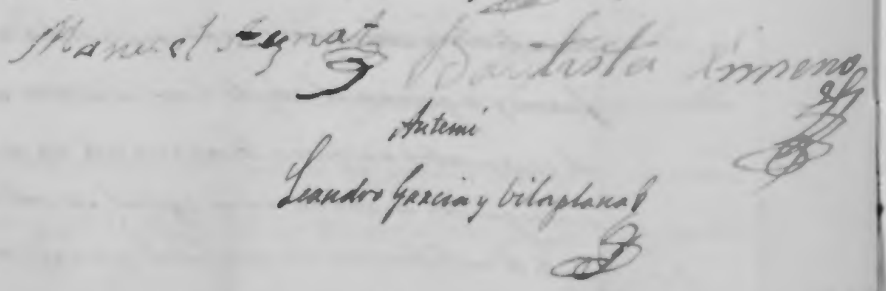 Manuel Aznar Bautista Ximeno
Antemi
Leandro Garcia y Vilaplana